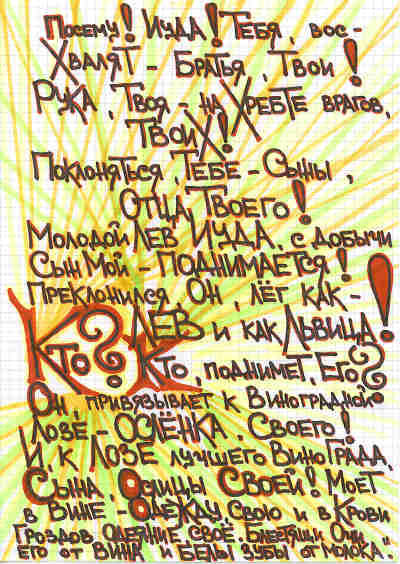 Посему! Иуда! Тебя, вос-
Хвалят - Братья, Твои!
Рука, Твоя - на Хребте врагов,
Твоих!
Поклоняться, Тебе - Сыны,
Отца, Твоего!
Молодой Лев Иуда, с добычи
Сын Мой - Поднимается!
Преклонился, Он, лёг как -
Кто? Лев и как Львица!
Кто, поднимет, Его?
Он, привязывает к Виноградной
Лозе - Ослёнка, Своего!
И, к Лозе лучшего Винограда,
Сына, Ослицы Своей! Моет
в Вине - Одежду Свою и в Крови
Гроздов Одеяние Своё. Блестящи Очи
его от вина и белы зубы от молока."